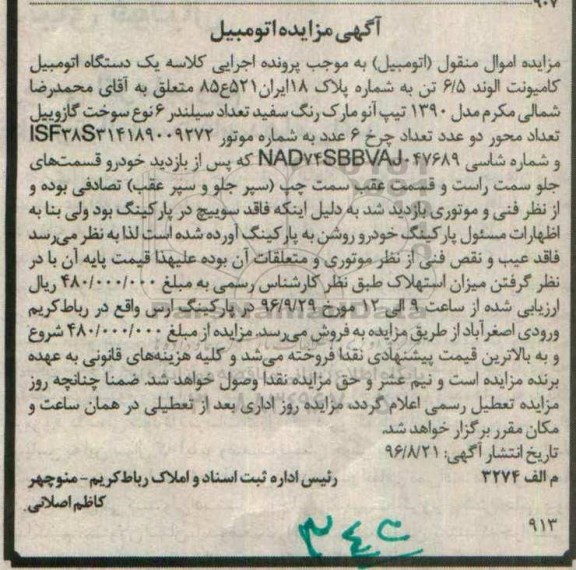 ۹۰۷
آگهی مزایده اتومبیل
مزایده اموال منقول (اتومبیل) به موجب پرونده اجرایی کلاسه یک دستگاه اتومبیل
کامیونت الوند ۶/۵ تن به شماره پلاک ۱۸ایران۵۲۱ع۸۵ متعلق به آقای محمدرضا
شمالی مکرم مدل ۱۳۹۰ تیپ آنو مارک رنگ سفید تعداد سیلندر ۶ نوع سوخت گازوییل
تعداد محور دو عدد تعداد چرخ ۶ عدد به شماره موتور ISF۳۸S۳۱۴۱۸۹۰۰۹۲۷۲
و شماره شاسی NAD۷۴SBBVAJ۰۴۷۶۸۹ که پس از بازدید خودرو قسمت‌های
جلو سمت راست و قسمت عقب سمت چپ (سپر جلو و سپر عقب) تصادفی بوده و
از نظر فنی و موتوری بازدید شد به دلیل اینکه فاقد سوییچ در پارکینگ بود ولی بنا به
اظهارات مسئول پارکینگ خودرو روشن به پارکینگ آورده شده است لذا به نظر می‌رسد
فاقد عیب و نقص فنی از نظر موتوری و متعلقات آن بوده علیهذا قیمت پایه آن با در
نظر گرفتن میزان استهلاک طبق نظر کارشناس رسمی به مبلغ ۴۸۰/۰۰۰/۰۰۰ ریال
ارزیابی شده از ساعت ۹ الی ۱۲ مورخ ۹۶/۹/۲۹ در پارکینگ ارس واقع در رباط‌کریم
ورودی اصغرآباد از طریق مزایده به فروش می‌رسد. مزایده از مبلغ ۴۸۰/۰۰۰/۰۰۰ شروع
و به بالاترین قیمت پیشنهادی نقدا فروخته می‌شد و کلیه هزینه‌های قانونی به عهده
برنده مزایده است و نیم عشر و حق مزایده نقدا وصول خواهد شد. ضمنا چنانچه روز
مزایده تعطیل رسمی اعلام گردد، مزایده روز اداری بعد از تعطیلی در همان ساعت و
مکان مقرر برگزار خواهد شد.
تاریخ انتشار آگهی: ۹۶/۸/۲۱
م الف ۳۲۷۴ رئیس اداره ثبت اسناد و املاک رباط‌کریم - منوچهر
کاظم اصلانی
۹۱۳